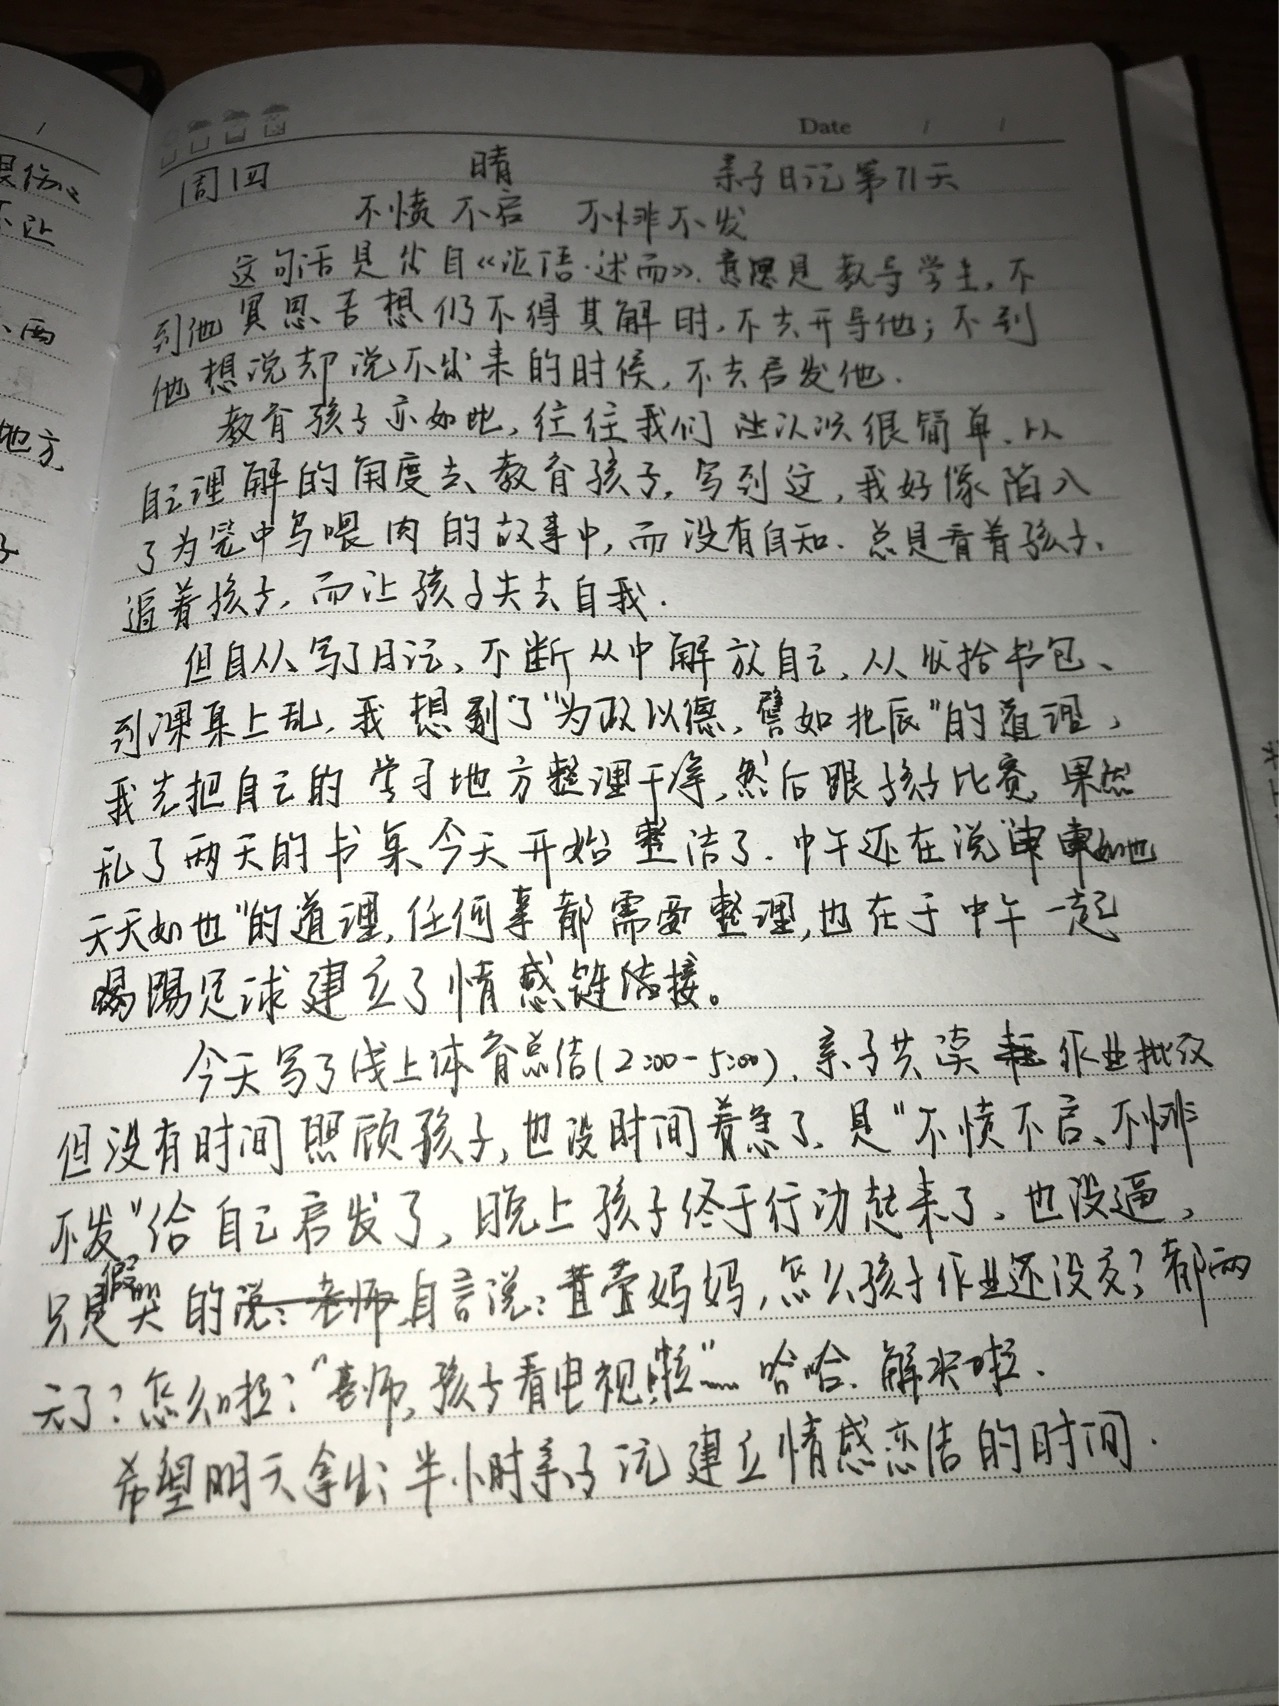 Date / /
周四 晴 亲子日记第71天
不愤不启 不悱不发
这句话是出自《论语·述而》.意思是教导学生,不
到他冥思苦想仍不得其解时,不去开导他;不到
他想说却说不出来的时候,不去启发他.
教育孩子亦如此,往往我们 认识很简单、以
自己理解的角度去教育孩子.写到这,我好像陷入
了为笼中鸟喂肉的故事中,而没有自知.总是看着孩子、
追着孩子,而让孩子失去自我.
但自从写了日记、不断从中解放自己,从收拾书包、
到课桌上乱,我想到了"为政以德,譬如北辰"的道理,
我先把自己的学习地方整理干净,然后跟孩子比赛,果然
乱了两天的书桌今天开始整洁了.中午还在说"申申如也
夭夭如也"的道理,任何事都需要整理,也在于中午一起
踢足球建立了情感链接。
今天写了线上体育总结(2:00-5:00)、亲子共读 作业批改
但没有时间照顾孩子,也没时间着急了、是"不愤不启、不悱
不发"给自己启发了,晚上孩子终于行动起来了、也没逼,
只是假哭的说:老师自言说:萱萱妈妈,怎么孩子作业还没交?都两
天了?怎么啦?"老师,孩子看电视啦"……哈哈.解决啦.
希望明天拿出半小时亲子 建立情感 结的时间.
地方
两